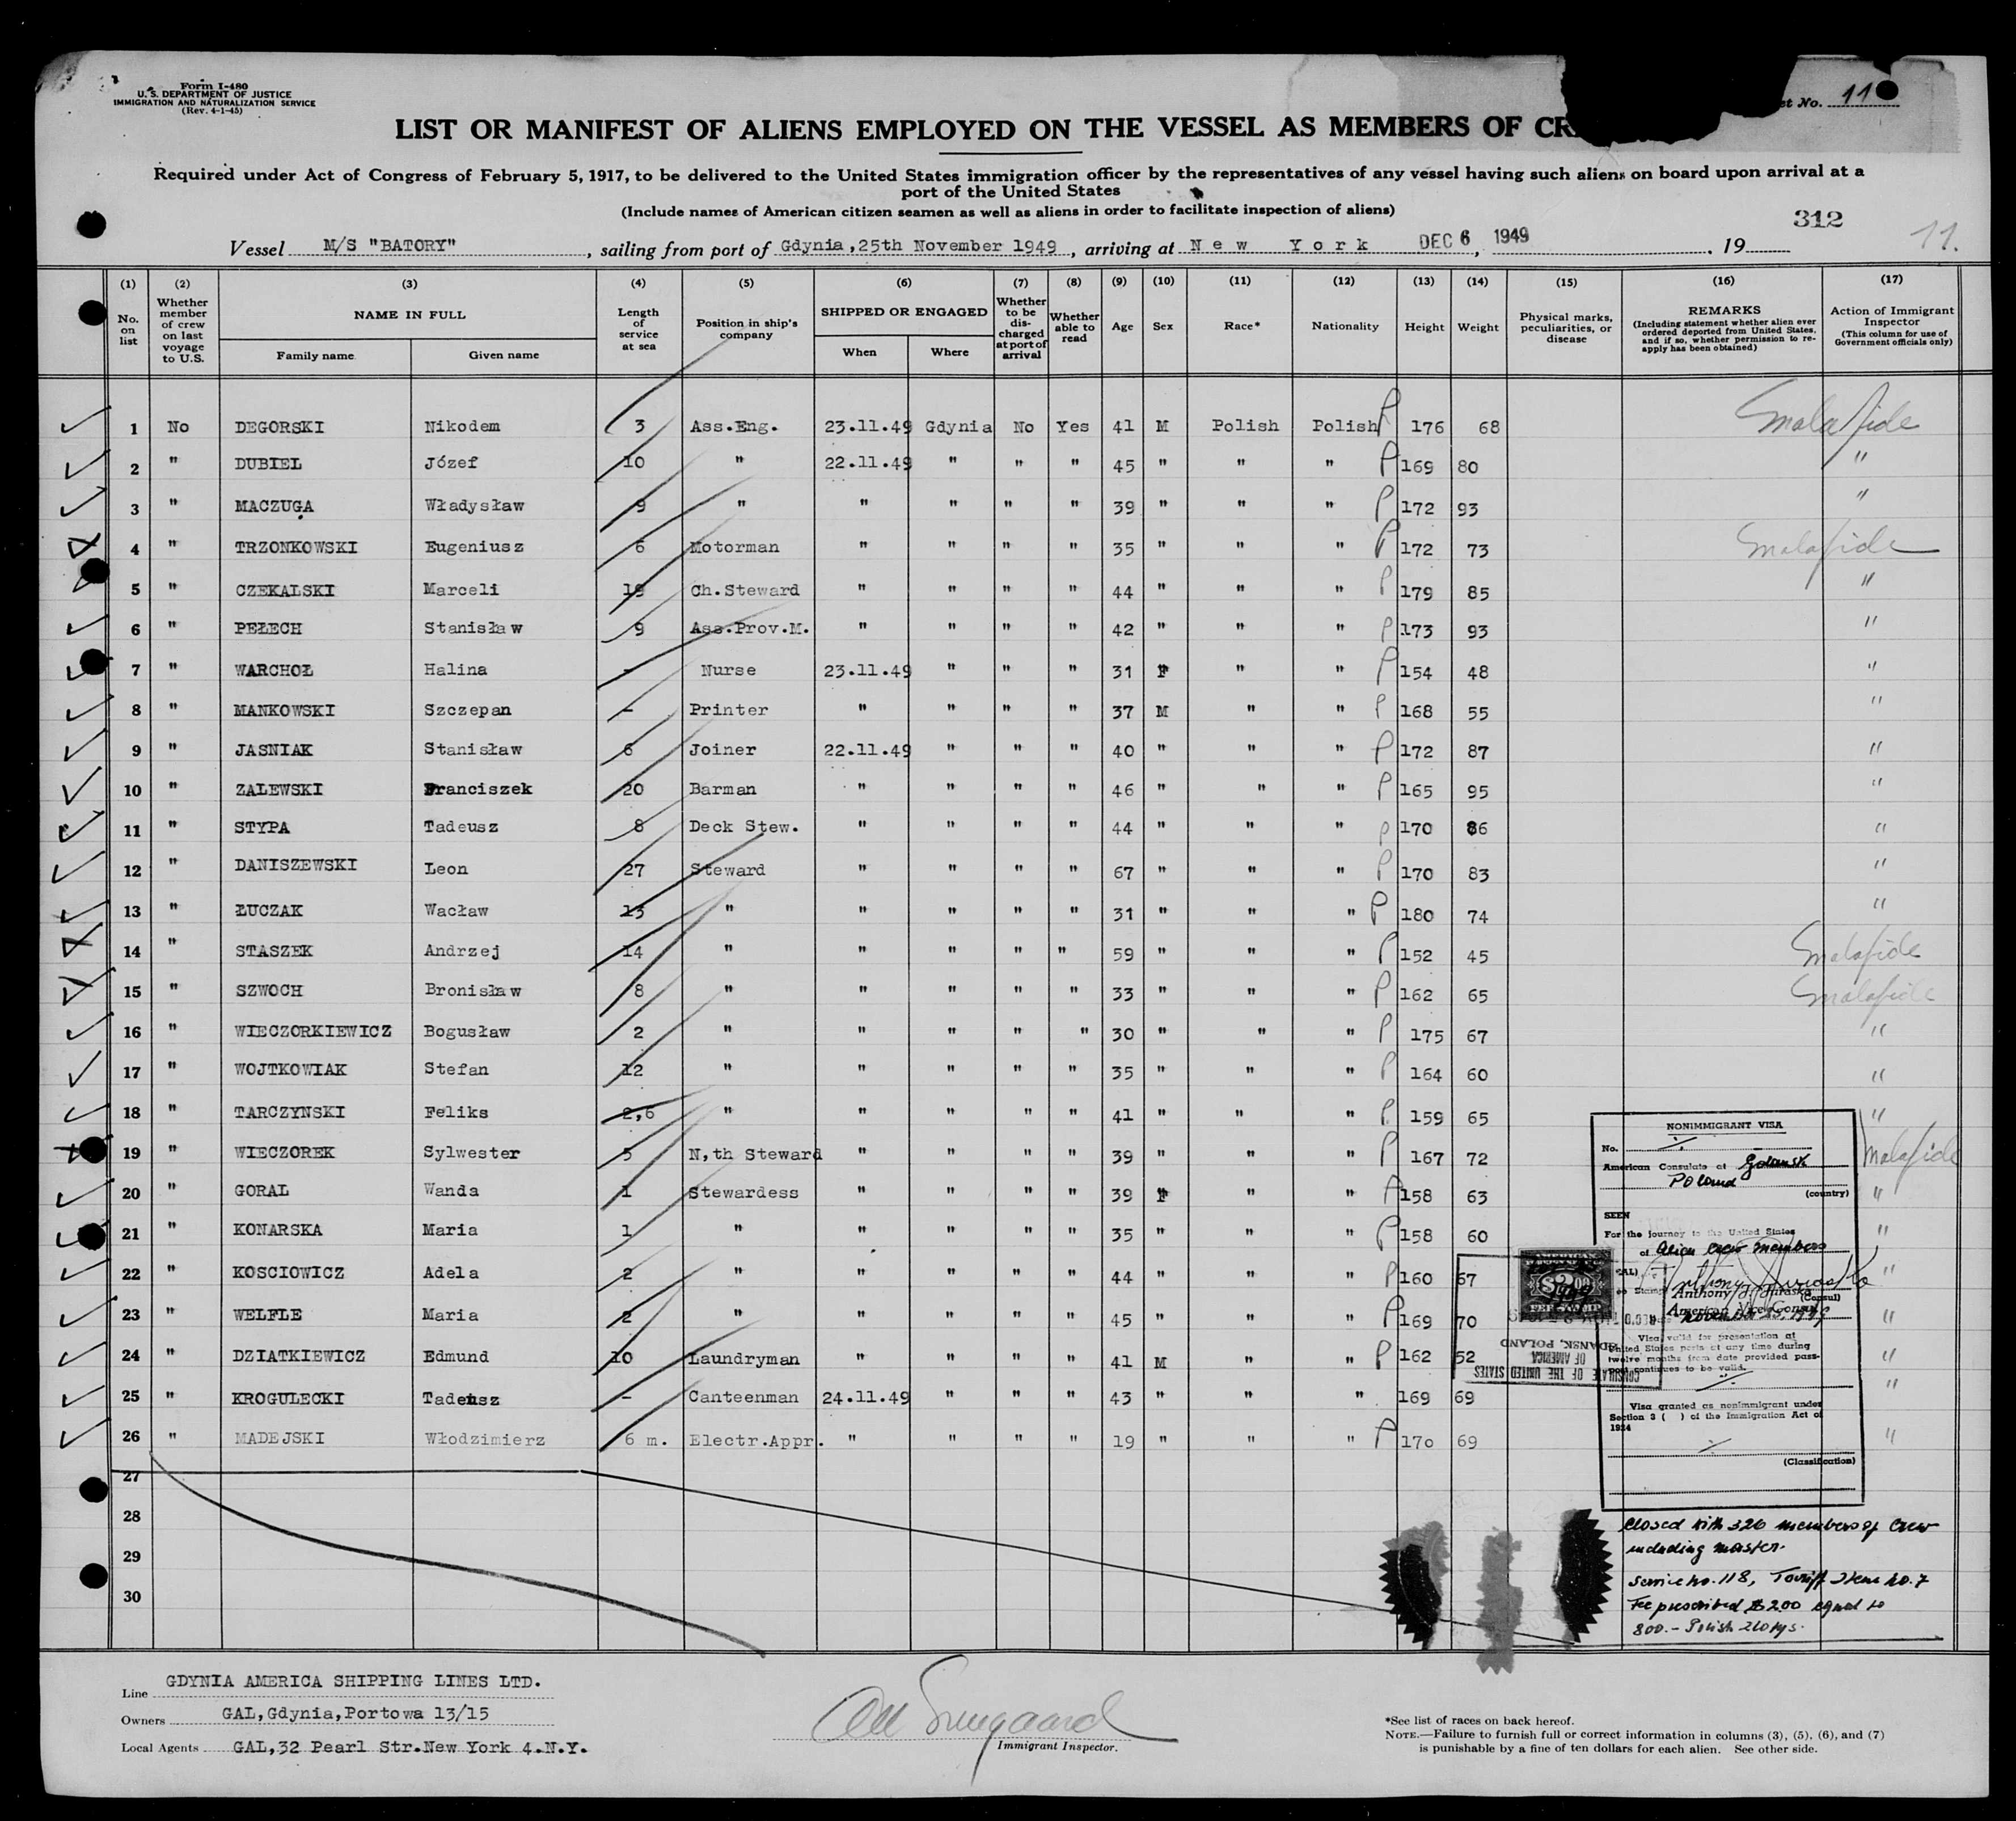 Form I-480
U. S. DEPARTMENT OF JUSTICE
IMMIGRATION AND NATURALIZATION SERVICE
(Rev. 4-1-45)
et No. 11
LIST OR MANIFEST OF ALIENS EMPLOYED ON THE VESSEL AS MEMBERS OF CR
Required under Act of Congress of February 5, 1917, to be delivered to the United States immigration officer by the representatives of any vessel having such aliens on board upon arrival at a
port of the United States
(Include names of American citizen seamen as well as aliens in order to facilitate inspection of aliens)
312
11.
Vessel M/S "BATORY", sailing from port of Gdynia,25th November 1949, arriving at New York DEC 6 1949, 19
(1) (2) (3) (4) (5) (6) (7) (8) (9) (10) (11) (12) (13) (14) (15) (16) (17)
No. on list
Whether member of crew on last voyage to U.S.
NAME IN FULL
Family name Given name
Length of service at sea
Position in ship's company
SHIPPED OR ENGAGED
When Where
Whether to be discharged at port of arrival
Whether able to read
Age
Sex
Race*
Nationality
Height
Weight
Physical marks, peculiarities, or disease
REMARKS
(Including statement whether alien ever ordered deported from United States, and if so, whether permission to re-apply has been obtained)
Action of Immigrant Inspector
(This column for use of Government officials only)
1 No DEGORSKI Nikodem 3 Ass.Eng. 23.11.49 Gdynia No Yes 41 M Polish Polish P 176 68 Malafide
2 " DUBIEL Józef 10 " 22.11.49 " " " 45 " " " P 169 80 "
3 " MACZUGA Władysław 9 " " " " " 39 " " " P 172 93 "
4 " TRZONKOWSKI Eugeniusz 6 Motorman " " " " 35 " " " P 172 73 Malafide
5 " CZEKALSKI Marceli 19 Ch.Steward " " " " 44 " " " P 179 85 "
6 " PEŁECH Stanisław 9 Ass.Prov.M. " " " " 42 " " " P 173 93 "
7 " WARCHOŁ Halina - Nurse 23.11.49 " " " 31 F " " P 154 48 "
8 " MANKOWSKI Szczepan - Printer " " " " 37 M " " P 168 55 "
9 " JASNIAK Stanisław 6 Joiner 22.11.49 " " " 40 " " " P 172 87 "
10 " ZALEWSKI Franciszek 20 Barman " " " " 46 " " " P 165 95 "
11 " STYPA Tadeusz 8 Deck Stew. " " " " 44 " " " P 170 86 "
12 " DANISZEWSKI Leon 27 Steward " " " " 67 " " " P 170 83 "
13 " ŁUCZAK Wacław 13 " " " " " 31 " " " P 180 74 "
14 " STASZEK Andrzej 14 " " " " " 59 " " " P 152 45 Malafide
15 " SZWOCH Bronisław 8 " " " " " 33 " " " P 162 65 Malafide
16 " WIECZORKIEWICZ Bogusław 2 " " " " " 30 " " " P 175 67 "
17 " WOJTKOWIAK Stefan 12 " " " " " 35 " " " P 164 60 "
18 " TARCZYNSKI Feliks 2,6 " " " " " 41 " " " P 159 65 "
19 " WIECZOREK Sylwester 5 N,th Steward " " " " 39 " " " P 167 72 Malafide
20 " GORAL Wanda 1 Stewardess " " " " 39 F " " P 158 63 "
21 " KONARSKA Maria 1 " " " " " 35 " " " P 158 60 "
22 " KOSCIOWICZ Adela 2 " " " " " 44 " " " P 160 67 "
23 " WELFLE Maria 2 " " " " " 45 " " " P 169 70 "
24 " DZIATKIEWICZ Edmund 10 Laundryman " " " " 41 M " " P 162 52 "
25 " KROGULECKI Tadeusz - Canteenman 24.11.49 " " " 43 " " " 169 69 "
26 " MADEJSKI Włodzimierz 6 m. Electr.Appr. " " " " 19 " " " P 170 69 "
27
28
29
30
NONIMMIGRANT VISA
No.
American Consulate at Gdansk
Poland
(country)
SEEN
For the journey to the United States
of Alien crew members
Anthony
(Consul)
American Vice Consul
AMERICAN
$2.00
FEE STAMP
CONSULATE OF THE UNITED STATES
OF AMERICA
GDANSK, POLAND
Visa valid for presentation at
United States ports at any time during
twelve months from date provided pass-
port continues to be valid.
Visa granted as nonimmigrant under
Section 3 ( ) of the Immigration Act of
1924
(Classification)
Closed with 326 members of Crew
including master.
Service No. 118, Tariff Item No. 7
Fee prescribed $2.00 equal to
800.- Polish zlotys.
Line GDYNIA AMERICA SHIPPING LINES LTD.
Owners GAL,Gdynia,Portowa 13/15
Local Agents GAL,32 Pearl Str.New York 4.N.Y.
Immigrant Inspector.
*See list of races on back hereof.
NOTE.—Failure to furnish full or correct information in columns (3), (5), (6), and (7)
is punishable by a fine of ten dollars for each alien. See other side.